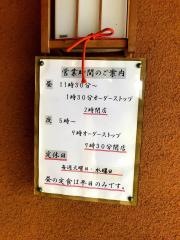 営業時間のご案内
昼 11時30分〜
1時30分オーダーストップ
2時閉店
夜 5時〜
9時オーダーストップ
9時30分閉店
定休日
毎週火曜日・水曜日
昼の定食は平日のみです。